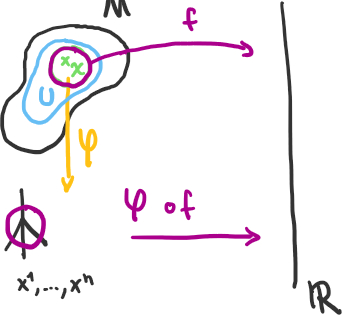 M
f
x x
U
φ
φ of
x¹,...,xⁿ
ℝ